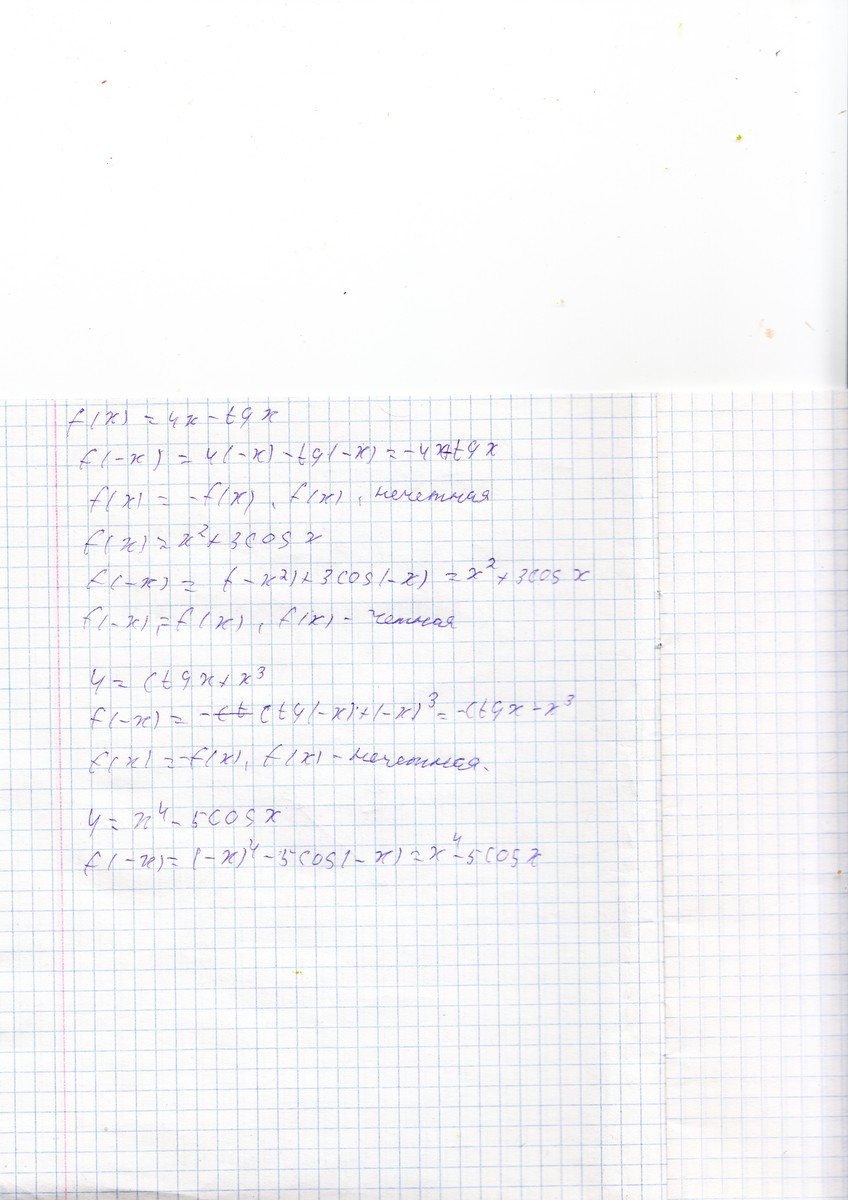 f(x) = 4x - tg x
f(-x) = 4(-x) - tg(-x) = -4x+tg x
f(x) = -f(x), f(x), нечетная
f(x) = x² + 3cos x
f(-x) = (-x²) + 3cos(-x) = x² + 3cos x
f(-x) = f(x), f(x) - четная
y = ctg x + x³
f(-x) = - ctg(-x) + (-x)³ = -ctg x - x³
f(x) = -f(x), f(x) - нечетная.
y = x⁴ - 5cos x
f(-x) = (-x)⁴ - 5cos(-x) = x⁴ - 5cos x